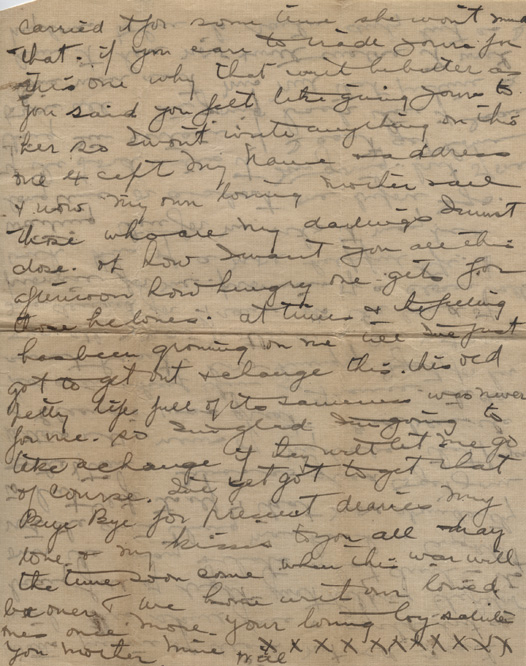 carried it for some time she won't mind
that. if you care to trade yours for
this one why that will be better as
you said you felt like giving yours to
her so I won't write anything on this
one excpt my name & address
& now my own loving mother and
those who are my darlings I must
close. oh how I want you all this
afternoon how hungry one gets for
those he loves. at times & the feeling
has been growing on me till I've just
got to get out & change this. this old
petty life full of its sameness was never
for me. so I'm glad I'm going to
like a change if they will let me go
of course. I've yet got to get that
Bye Bye for present dearies my
love & my kisses to you all may
the time soon come when this war will
be over & we home with our loved
ones once more. your loving boy salutes
you mother mine Will x x x x x x x x x x x